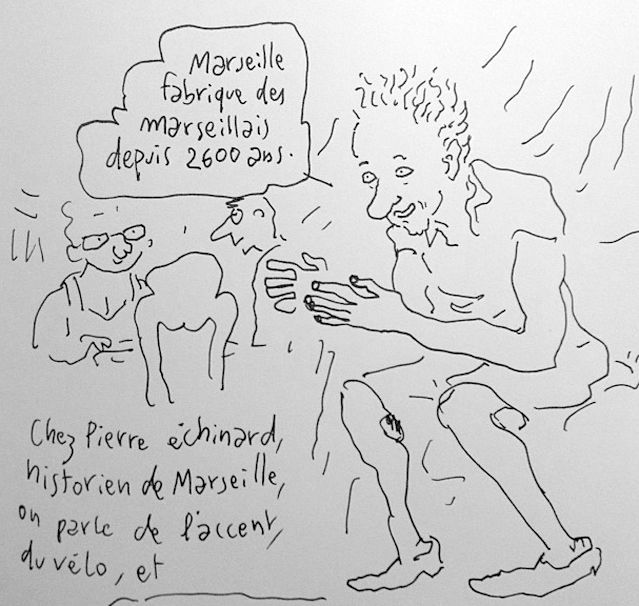 Marseille
fabrique des
marseillais
depuis 2600 ans.
Chez Pierre échinard,
historien de Marseille,
on parle de l'accent,
du vélo, et